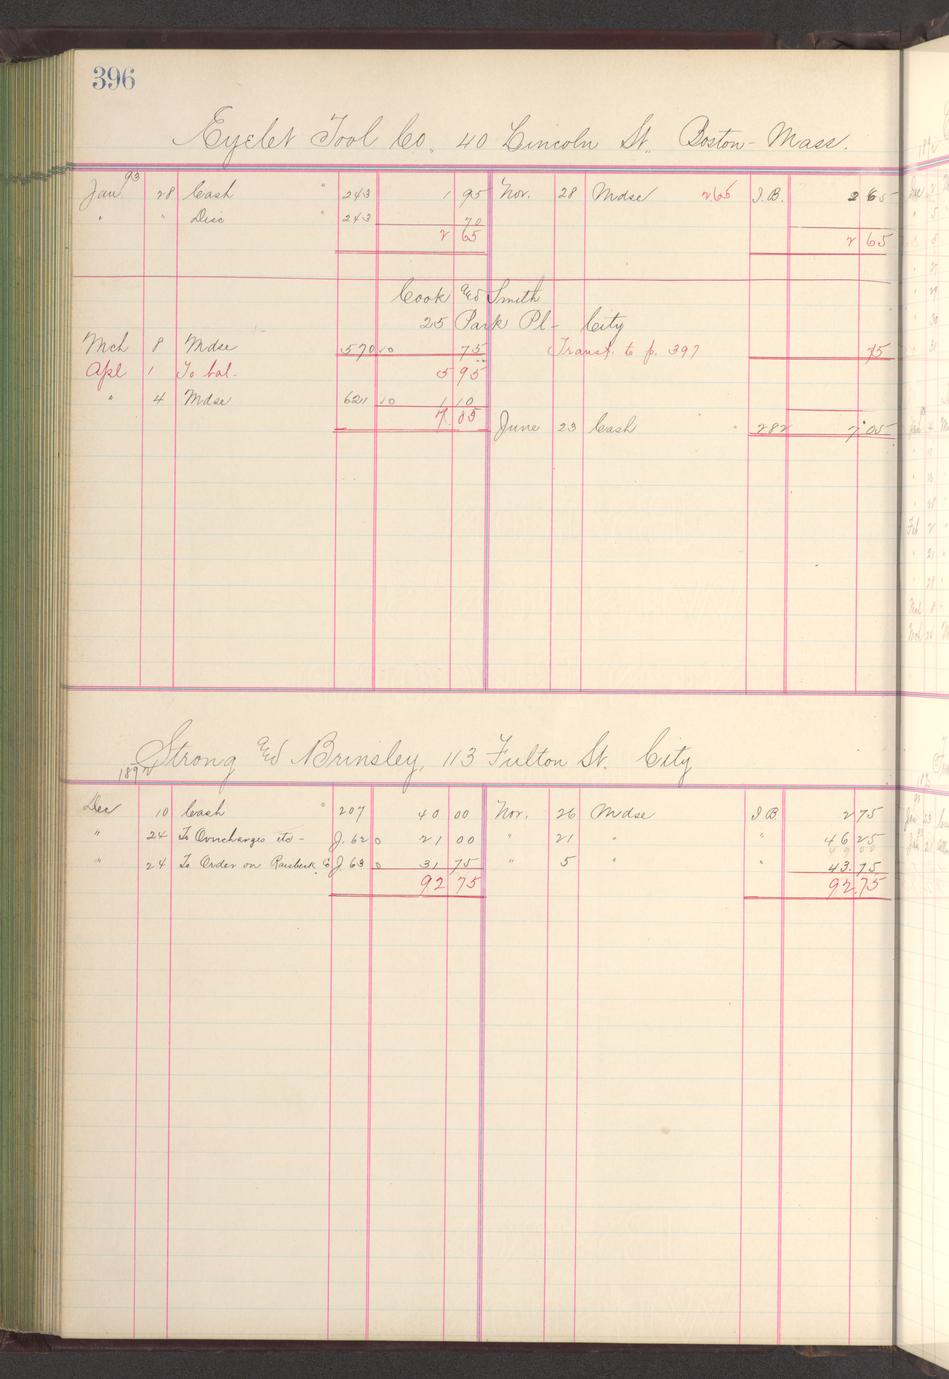 396
Eyelet Tool Co. 40 Lincoln St. Boston - Mass.
Jan 93 28 Cash " 243 1 95 Nov. 28 Mdse 265 I.B. 2 65
" " Disc " 243 70
2 65 2 65
Cook and Smith
25 Park Pl - City
Mch 8 Mdse 570 10 75 Transf. to p. 397 75
Apl 1 To bal - 5 95
" 4 Mdse 621 10 1 10
7 05
June 23 Cash " 282 7 05
Strong and Brinsley, 113 Fulton St. City
1892
Dec 10 Cash " 207 40 00 Nov. 26 Mdse I B 2 75
" 24 To Overcharges etc - J. 62 0 21 00 " 21 " " 46 25
" 24 To Order on Raisbeck Co J. 63 0 31 75 " 5 " " 43.75
92 75 92.75